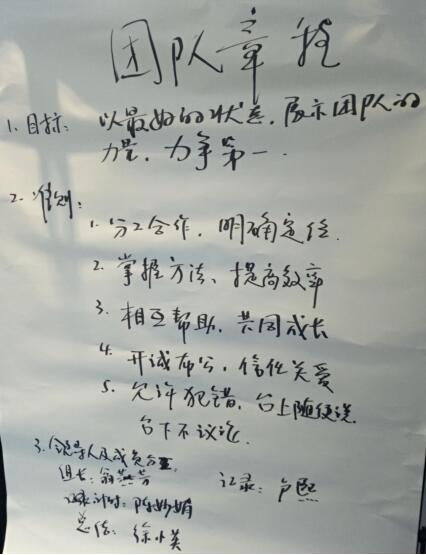 团队章程
1. 目标: 以最好的状态, 展示团队的
力量, 力争第一.
2. 准则:
1. 分工合作, 明确定位.
2. 掌握方法、提高效率
3. 相互帮助, 共同成长
4. 开诚布公, 信任关爱
5. 允许犯错, 台上随便说
台下不议论.
3. 领导人及成员分工:
组长:
记录: 卢熙
计时: 陈妙娟
总结: 徐小英